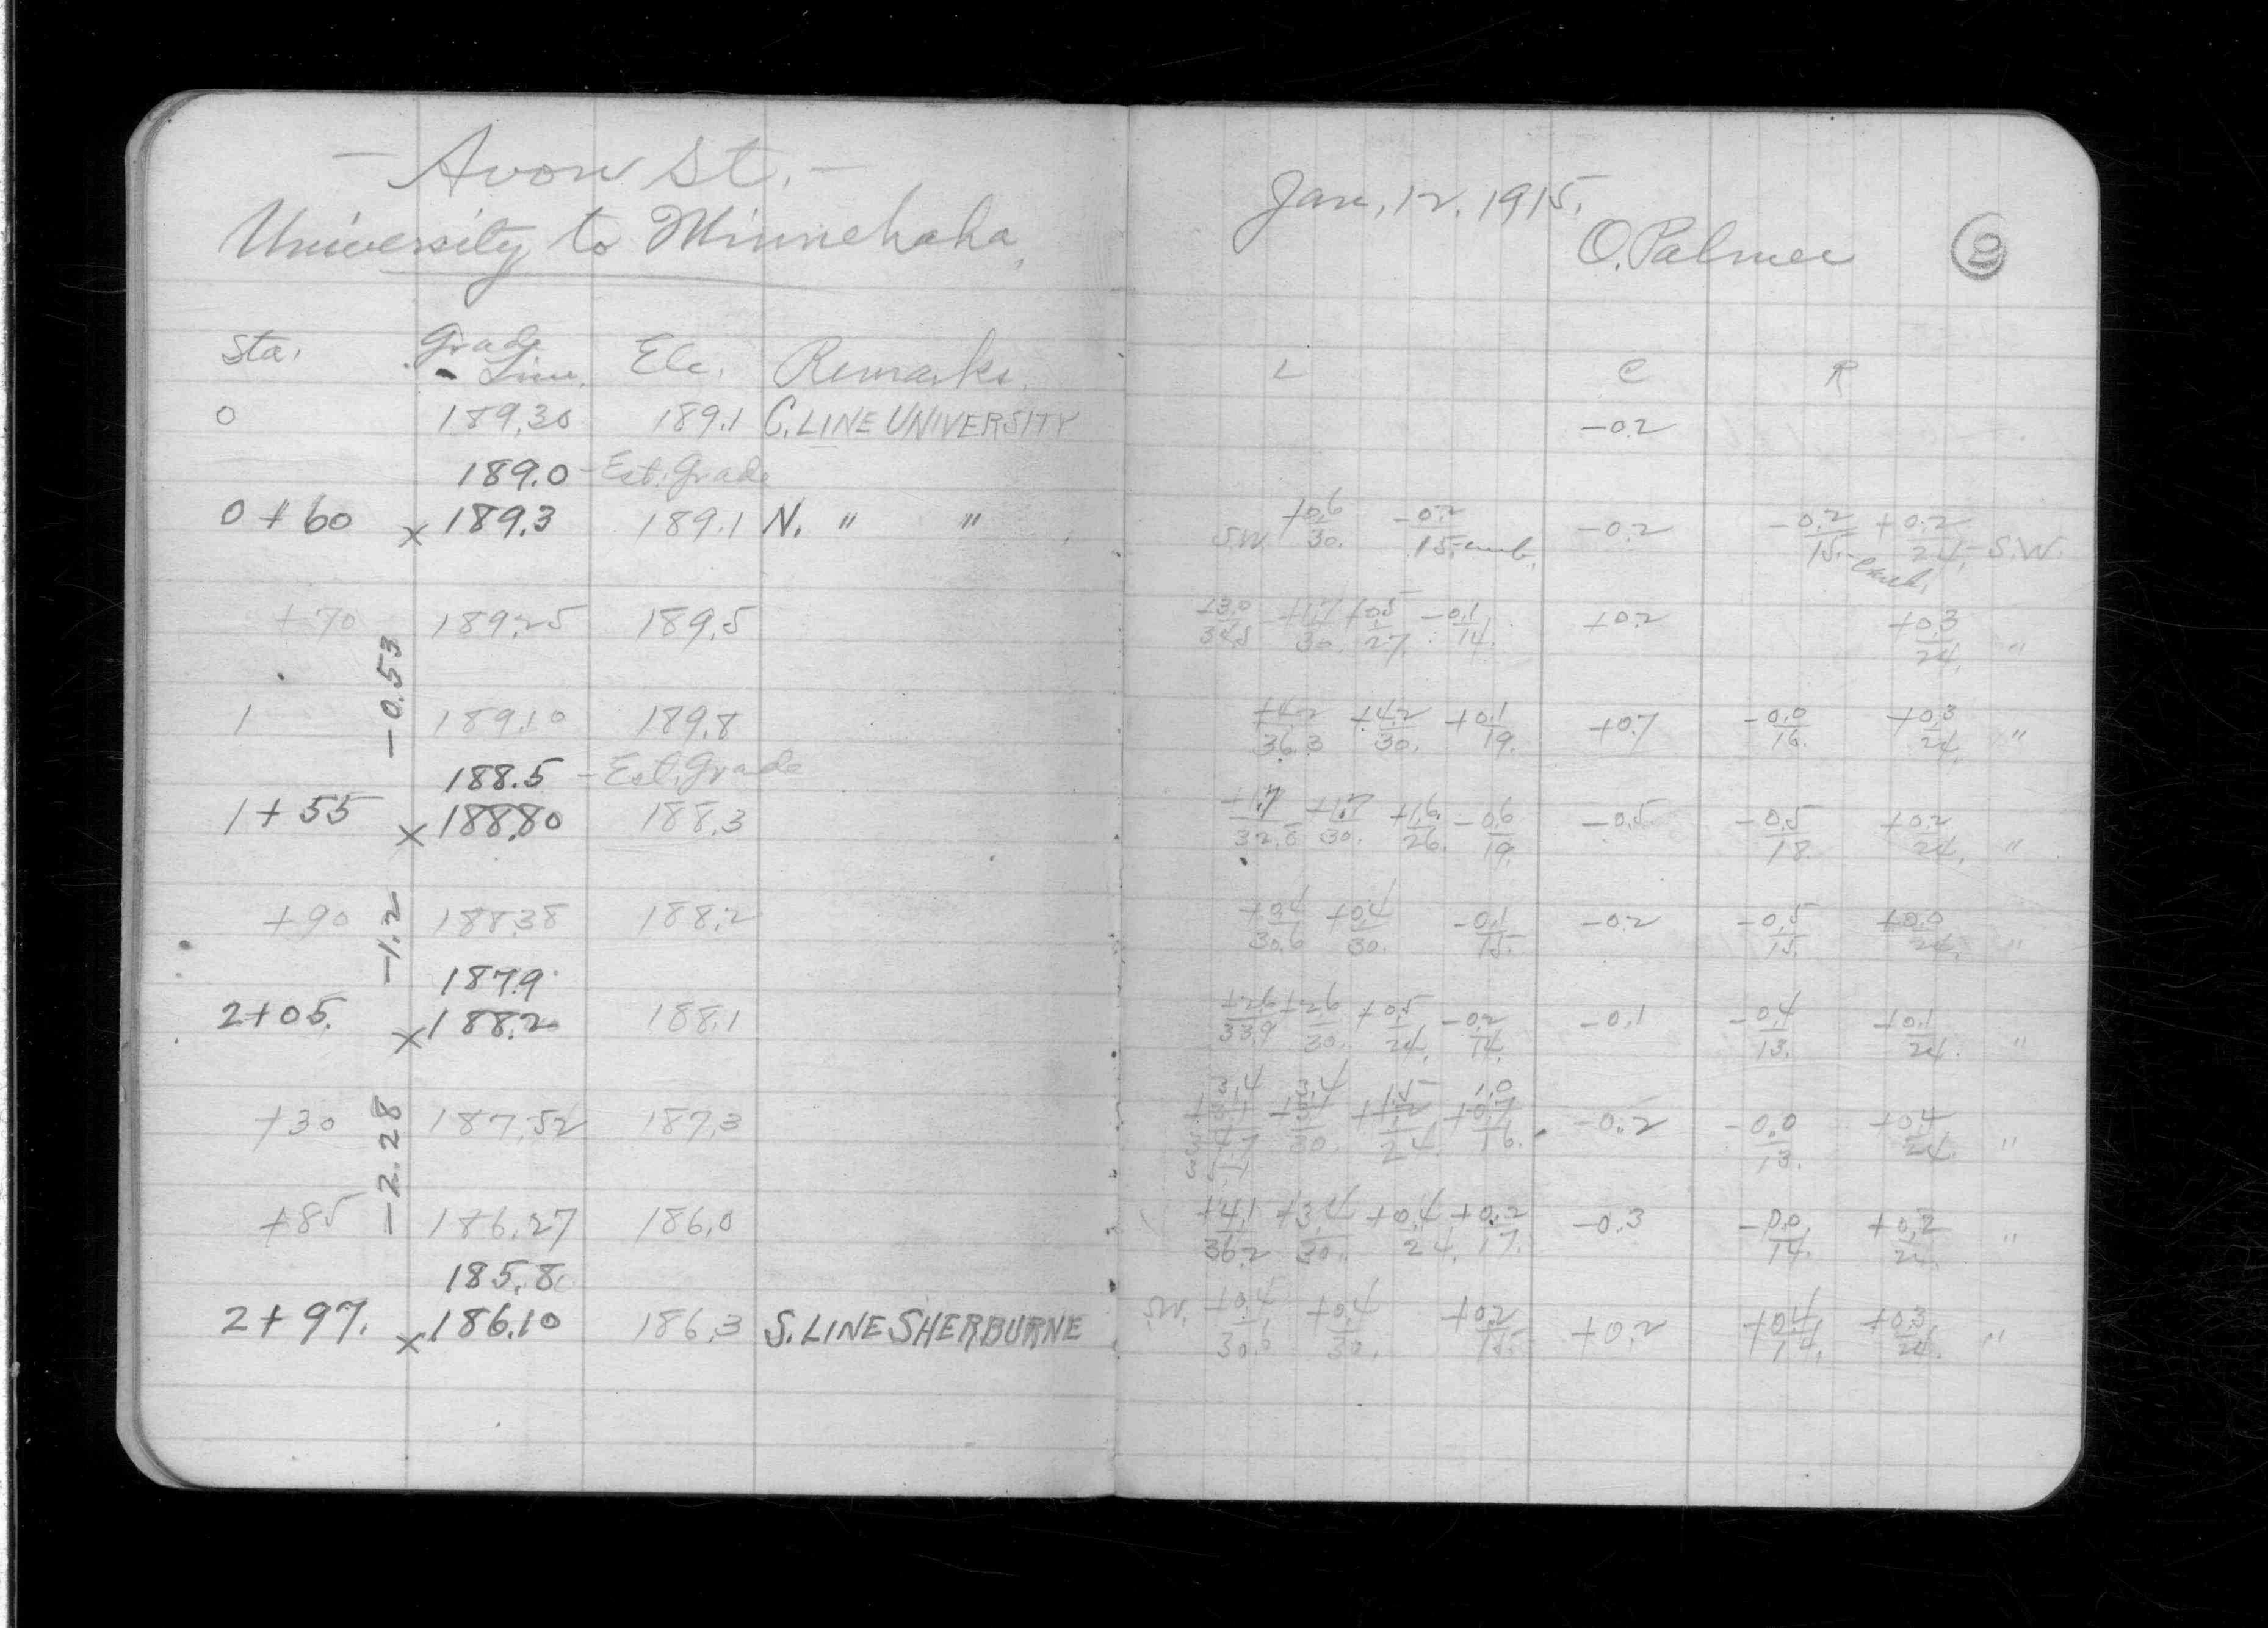 - Avon St. -
University to Minnehaha,
Sta. Grade Line. Ele. Remarks.
0 189.30 189.1 C. LINE UNIVERSITY
189.0 - Est. Grade
0 + 60 x 189.3 189.1 N. " "
+ 70 189.25 189.5
-0.53
1 189.10 189.8
188.5 - Est. Grade
1 + 55 x 188.80 188.3
+90 188.38 188.2
-1.2
187.9
2+05. x 188.2 188.1
+30 187.52 187.3
-2.28
+85 186.27 186.0
185.8
2+97. x 186.10 186.3 S. LINE SHERBURNE
Jan. 12, 1915.
O. Palmer
L C R
-0.2
S.W. +0.6/30. -0.2/15.-curb. -0.2 -0.2/15.-curb. +0.2/24.- S.W.
+3.0/34.5 +1.7/30. +0.5/27. -0.1/14. +0.2 +0.3/24. "
+4.2/36.3 +4.2/30. +0.1/19. +0.7 -0.0/16. +0.3/24. "
+1.7/32.6 +1.7/30. +1.6/26. -0.6/19. -0.5 -0.5/18. +0.2/24. "
+0.4/30.6 +0.4/30. -0.1/15. -0.2 -0.5/15. +0.0/24. "
+2.6/33.9 +2.6/30. +0.5/24. -0.2/14. -0.1 -0.4/13. +0.1/24. "
3.4 3.4 1.5 1.0
30. 24. 16. -0.2 -0.0/13. +0.4/24. "
+4.1/36.2 +3.4/30. +0.4/24. +0.2/17. -0.3 -0.0/14. +0.2/24. "
S.W. +0.4/30.6 +0.4/30. +0.2/15. +0.2 +0.4/14. +0.3/24. "